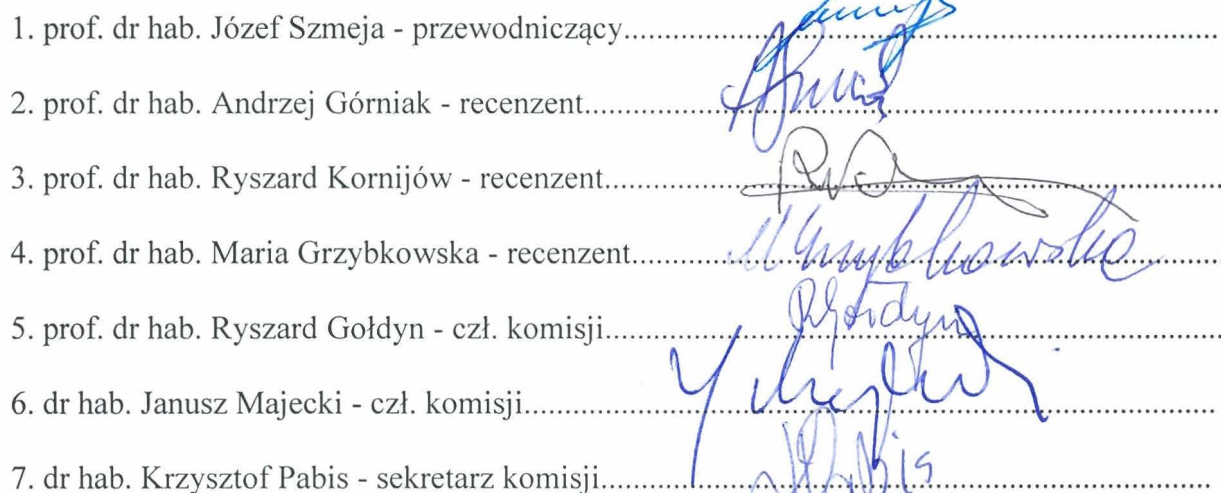 1. prof. dr hab. Józef Szmeja - przewodniczący
2. prof. dr hab. Andrzej Górniak - recenzent
3. prof. dr hab. Ryszard Kornijów - recenzent
4. prof. dr hab. Maria Grzybkowska - recenzent MGrzybkowska
5. prof. dr hab. Ryszard Gołdyn - czł. komisji RGołdyn
6. dr hab. Janusz Majecki - czł. komisji
7. dr hab. Krzysztof Pabis - sekretarz komisji